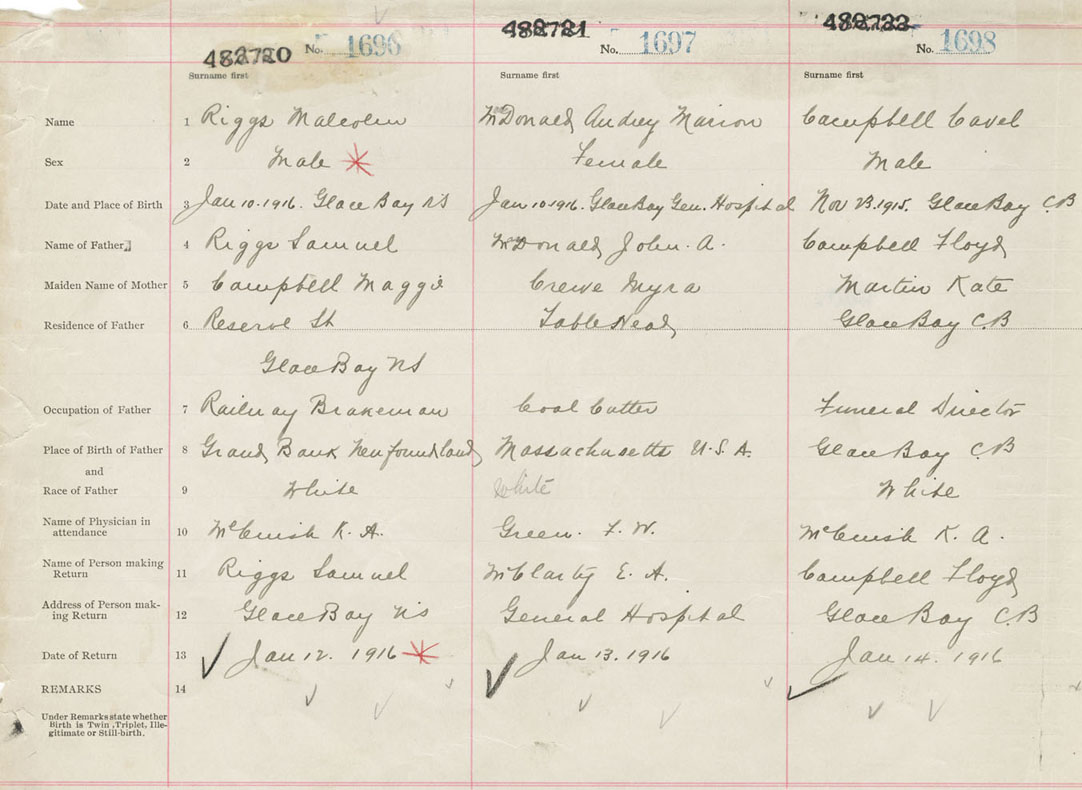 482720 No. 1696 482721 No. 1697 482722 No. 1698
Surname first Surname first Surname first
Name 1 Riggs Malcolm McDonald Audrey Marion Campbell Cavel
Sex 2 Male Female Male
Date and Place of Birth 3 Jan 10. 1916. Glace Bay NS Jan 10 1916. Glace Bay Gen. Hospital Nov 23. 1915. Glace Bay C.B
Name of Father 4 Riggs Samuel McDonald John. A. Campbell Floyd
Maiden Name of Mother 5 Campbell Maggie Crewe Myra Martin Kate
Residence of Father 6 Reserve St Table Head Glace Bay C.B
Glace Bay NS
Occupation of Father 7 Railway Brakeman Coal Cutter Funeral Director
Place of Birth of Father 8 Grand Bank Newfoundland Massachusetts U.S.A. Glace Bay C B
and
Race of Father 9 White White White
Name of Physician in
attendance 10 McCuish K. A. Green. F. W. McCuish K. A.
Name of Person making
Return 11 Riggs Samuel McClarty E. A. Campbell Floyd
Address of Person mak-
ing Return 12 Glace Bay NS General Hospital Glace Bay C.B
Date of Return 13 Jan 12. 1916 Jan 13. 1916 Jan 14. 1916
REMARKS 14
Under Remarks state whether
Birth is Twin, Triplet, Ille-
gitimate or Still-birth.